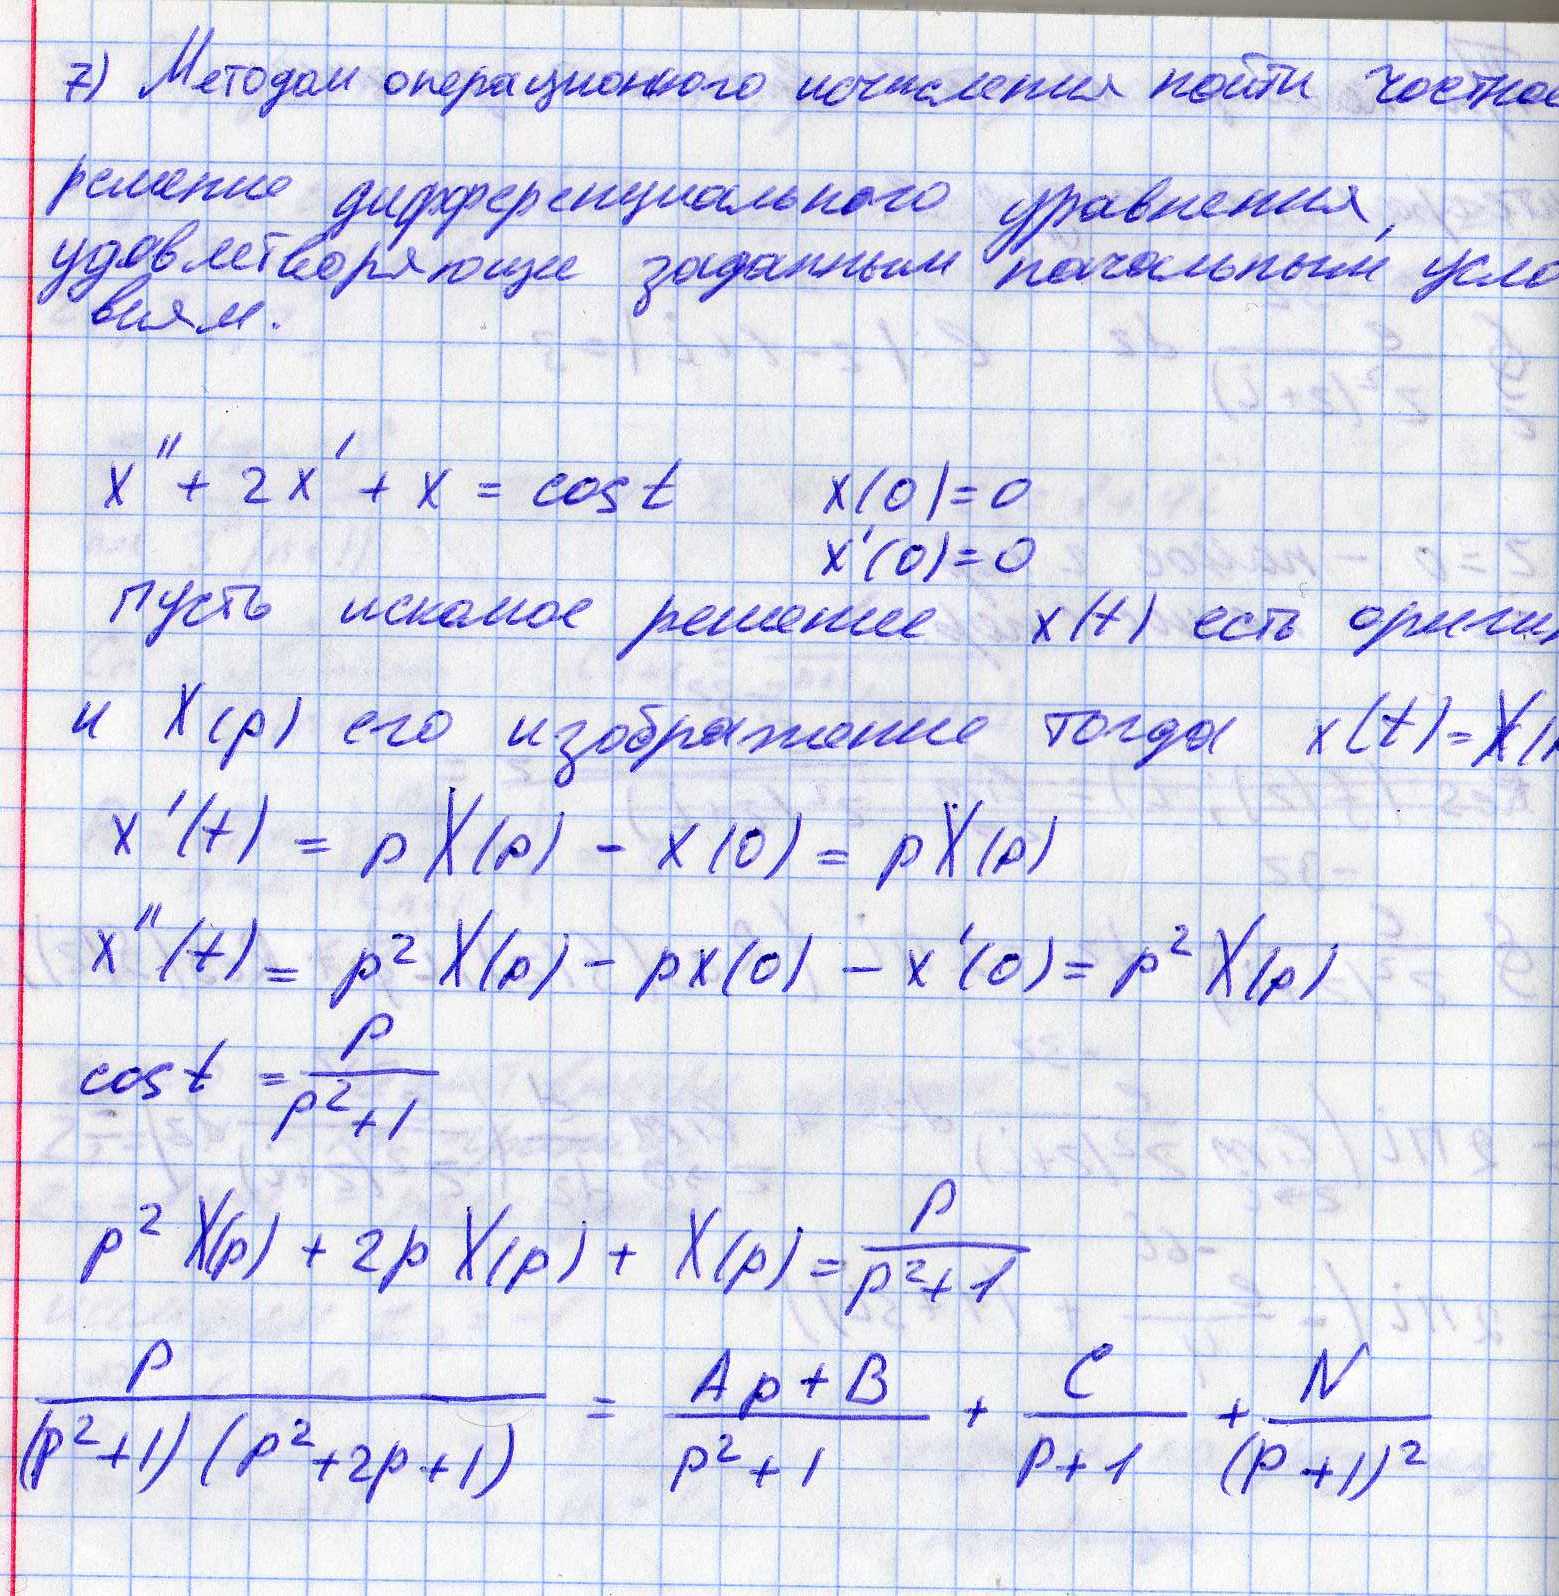 7) Методом операционного исчисления найти частное
решение дифференциального уравнения,
удовлетворяющие заданным начальным усло
виям.
x'' + 2x' + x = cos t x(0)=0
x'(0)=0
Пусть искомое решение x(t) есть оригин
и X(p) его изображение тогда x(t)=X(p
x'(t) = pX(p) - x(0) = pX(p)
x''(t) = p² X(p) - px(0) - x'(0) = p² X(p)
cos t = p/(p²+1)
p² X(p) + 2p X(p) + X(p) = p/(p²+1)
p/((p²+1)(p²+2p+1)) = (Ap+B)/(p²+1) + C/(p+1) + N/(p+1)²